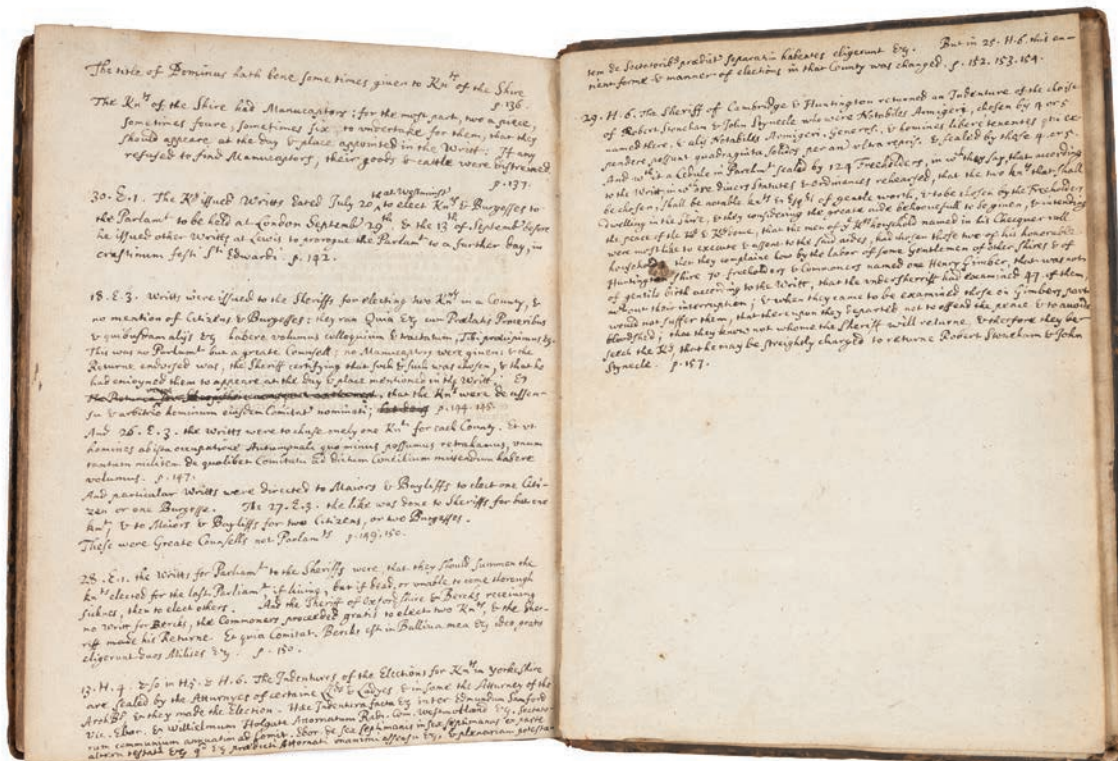 The title of Dominus hath bene some times given to Knts of the Shire
p. 136.
The Knts of the Shire had Manucaptors; for the most part, two a piece,
sometimes foure, sometimes six, to undertake for them, that they
should appeare at the day & place appointed in the Writt. If any
refused to find Manucaptors, their goods & cattle were distreined
p. 137.
30. E. 1. The Kg issued Writts dated July 20 at Westminstr to elect Knts & Burgesses to
the Parlamt to be held at London Septembr 29th, & the 13th of Septembr before
he issued other Writts at Lewis to prorogue the Parlamt to a further day, in
crastinum festi Sti Edwardi. p. 142.
18. E. 3. Writts were issued to the Sheriffs for electing two Knts in a County, &
no mention of Citizens & Burgesses: they ran Quia &c cum Prælatis Proceribus
& quibusdam alijs &c habere volumus colloquium & tractatum, Tibi præcipimus &c.
This was no Parlamt but a greate Counsell; no Manucaptors were given; & the
Returne endorsed was, the Sheriff certifying that such & such was chosen, & that he
had enioyned them to appeare at the day & place mentioned in the Writt. Et
that the Knts were de assen-
su & arbitrio hominum eiusdem Comitat nominati; p. 144. 145.
And 26. E. 3. the Writts were to chuse onely one Knt for each County. Et ut
homines ab ista occupatione Autumpnali quo minus possumus retrahamus, unum
tantum militem de quolibet Comitatu ad dictum Concilium mittendum habere
volumus. p. 147.
And particular Writts were directed to Maiors & Bayliffs to elect one Citi-
zen or one Burgesse. The 27. E. 3. the like was done to Sheriffs for but one
Knt, & to Maiors & Bayliffs for two Citizens, or two Burgesses.
These were Greate Counsells not Parlamts p. 149, 150.
28. E. 1. the Writts for Parliamt to the Sheriffs were, that they should summon the
Knts elected for the last Parliamt if living, but if dead, or unable to come thorough
sicknes, then to elect others. And the Sheriff of Oxfordshire & Bercks receiving
no Writt for Bercks, the Commoners proceeded gratis to elect two Knts, & the Sher-
iff made his Returne. Et quia Comitat. Bercks est in Balliva mea &c ideo gratis
eligerunt duos Milites &c. p. 150.
13. H. 4. & so in H. 5. & H. 6. The Indentures of the Elections for Knts in Yorkeshire
are sealed by the Atturnyes of certaine Lds & Ladyes & in some the Atturney of the
ArchBp & they made the Election. Hæc Indentura facta &c inter Edmundum Sanford
Vic. Ebor. & Willielmum Holgate Attornatum Radi. Com. Westmorland &c. Sectato-
rum communium annuatim ad Comit. Ebor. de sex septimanis in sex septimanas ex parte
altera testatr &c qd &c prædicti Attornati unanimi assensu &c. & plenariam potesta-
tem de Sectatoribs prædict separatim habentes eligerunt &c. But in 25. H. 6. this an-
tient forme & manner of elections in that County was changed. p. 152. 153. 154.
29. H. 6. The Sheriff of Cambridge & Huntington returned an Indenture of the choise
of Robert Stoneham & John Styuecle who were Notabiles Armigeri, chosen by 4 or 5
named there, & alijs Notabiles Armigeri, Generosi, & homines libere tenentes qui ex-
pendere possunt quadraginta solidos per an ultra repris. & sealed by those 4 or 5.
And wth it a Cedule in Parchmt sealed by 124 Freeholders, in wch they say, that according
to the Writt, in wch are divers Statutes & Ordinances rehearsed, that the two knts that shall
be chosen, shall be notable knts or Esqs of gentle worth, & to be chosen by the Freeholders
dwelling in the Shire, & they considering the greate aide behovefull to be given, & intending
the peace of the Kg & Kgdome, that the men of ye Kgs household named in his Chequer roll
were most like to execute & assent to the said aides, had chosen those two of his honorable
household. Then they complaine how by the labor of some Gentlemen of other shires & of
Huntington shire 70 freeholders & Commoners named one Henry Gimber, that was not
of gentils birth according to the Writt, that the undersherriff had examined 47 of them
without their interruption; & when they came to be examined those on Gimbers part
would not suffer them, that there upon they departed not to offend the peace & to avoide
bloudshed; that they know not whome the Sheriff will returne, & therefore they be-
seech the Kg, that he may be streightly charged to returne Robert Stoneham & John
Styuecle. p. 157.